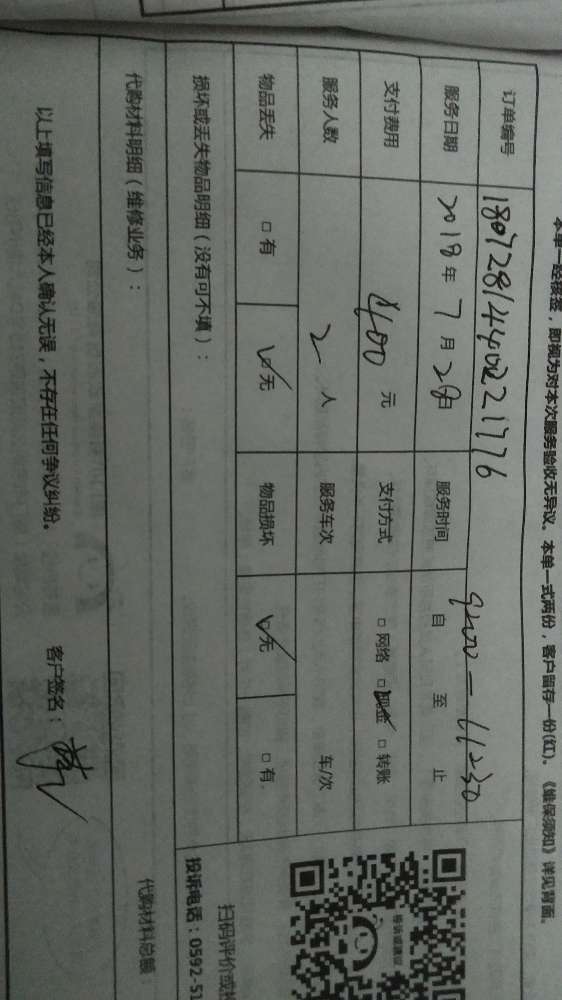 本单一经核签，即视为对本次服务验收无异议。本单一式两份，客户留存一份(红)。《维保须知》详见背面。
订单编号
服务日期 2018年7月28日 服务时间 自 至 止
支付费用 ¥400元 支付方式 □网络 □现金 □转账
服务人数 2人 服务车次 车/次
物品丢失 □有 □无 物品损坏 □无 □有
损坏或丢失物品明细（没有可不填）：
代购材料明细（维修业务）：
代购材料总额
以上填写信息已经本人确认无误，不存在任何争议纠纷。 客户签名：
投诉或建议
扫码评价或投
投诉电话：0592-51